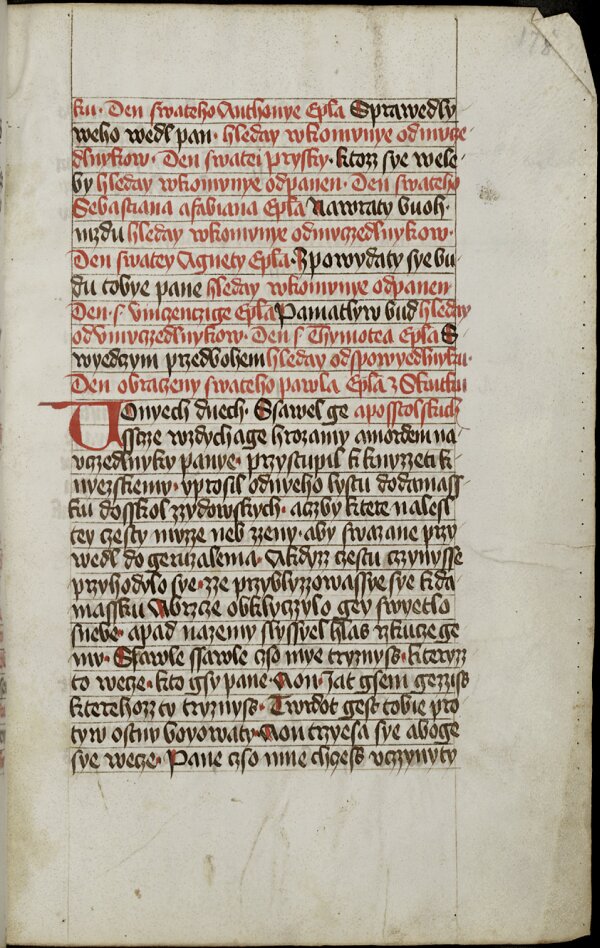 178
ku· Den swateho Anthonye Epla Sprawedly
weho wedl pan· hleday wkomynye odmucze
dlnykow· Den swatei prysky· ktorz sye wele
by hleday wkomynye odpanen· Den swateho
Sebastiana afabiana Epla Nawraty buoh·
mzdu hleday wkomynye odmuczedlnykow·
Den swatey Agnety Epla· Zpowydaty sye bu
du tobye pane hleday wkomynye odpanen
Den· s· vincenczige Epla Pamatlyw bud hleday
odvmuczedlnykow· Den s Thymotea Epla S
wyedczym przedbohem hleday odspowyedlnyku·
Den obraczeny swateho pawla Epla z Skutku
Vonyech dnech· Ssawel ge aposstolskich
sstcze wzdychage hrozamy amordem na
vczedlnyky panye· przystupil k knyzzeti k
nyezskiemu· vprosil odnyeho lystu dodamass
ku dosskol zzydowskych· aczby ktere nalesl
tey czesty muzze neb zzeny· aby swazane przy
wedl do geruzalema· Akdyzz czestu czynysse
przyhodylo sye· zze przyblyzzowassye sye kda
massku Abrzcze obklyczylo gey swyetlo
snebe· apad nazemy slyssyel hlas rzkucze ge
mu· Ssawle ssawle czso mye tryznyss· kteryzz
to wecze· kto gsy pane· Aon· Jat gsem gezziss
kterehozz ty tryznyss· Twrdot gest tobie pro
tyw ostnu boyowaty· Aon trzyesa sye aboge
sye wecze· Pane czso mne chczess vczynyty